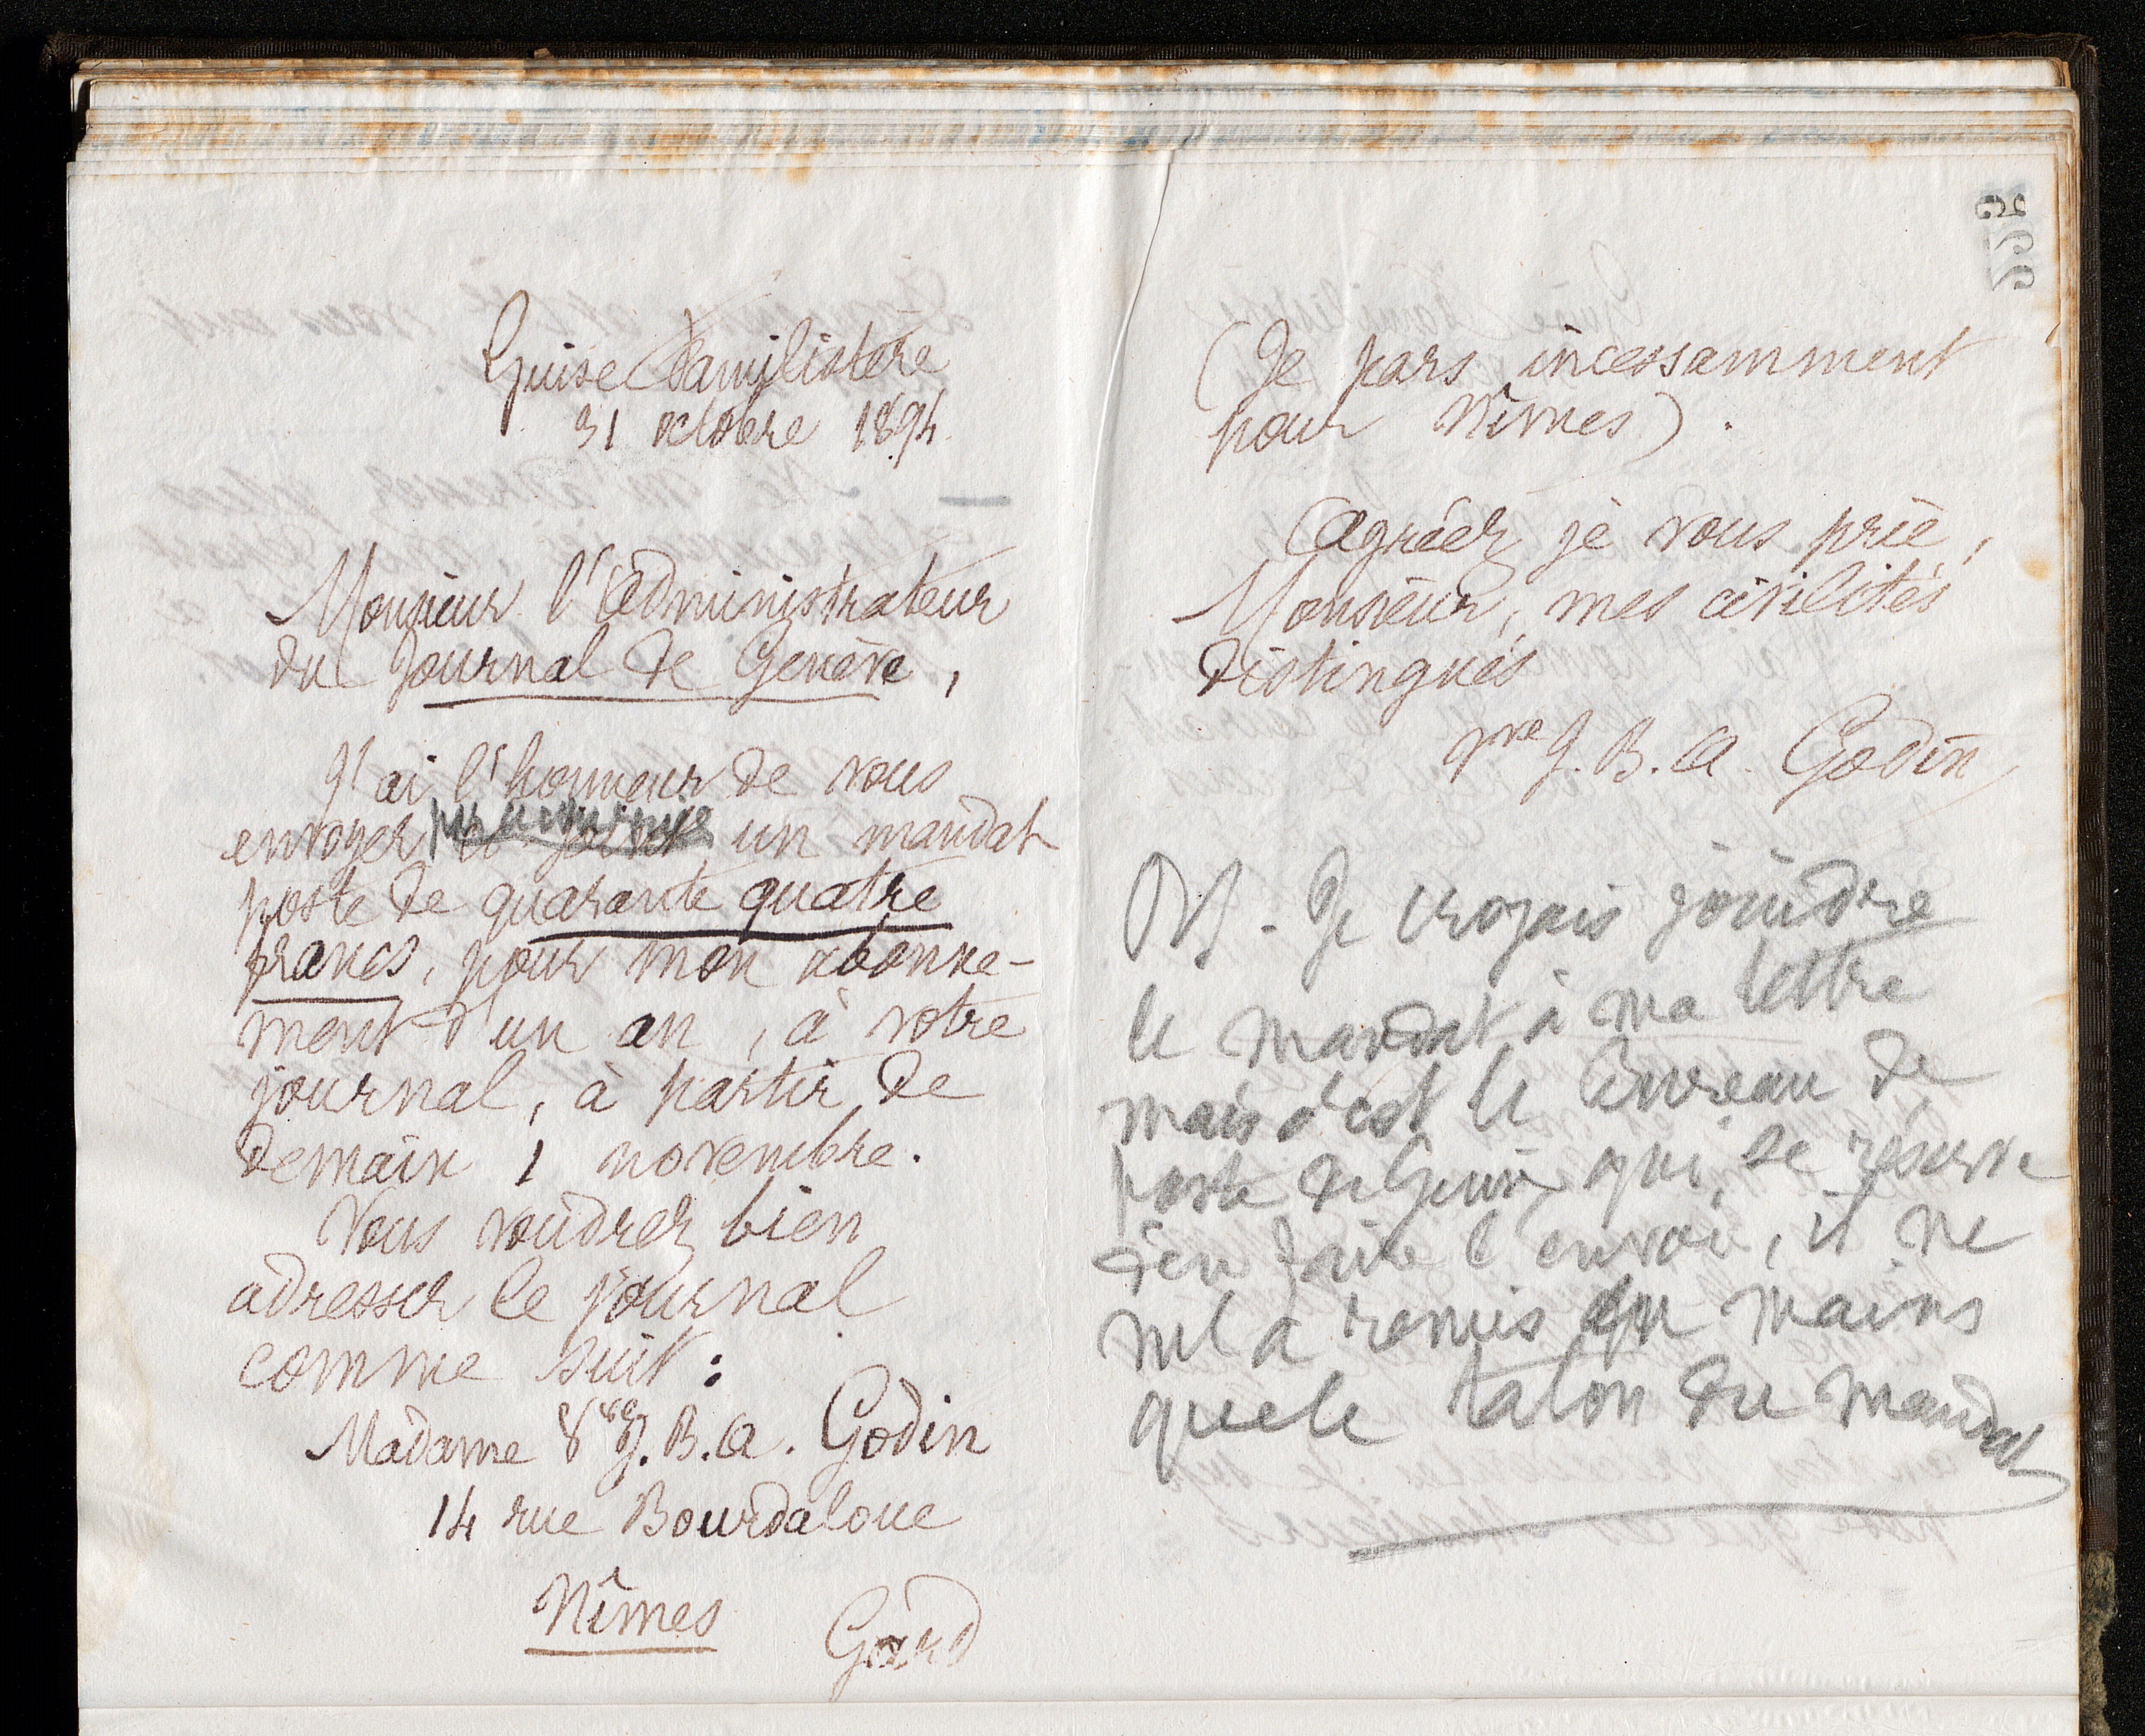 Guise Familistère
31 octobre 1894
Monsieur l'Administrateur
du Journal de Genève,
J'ai l'honneur de vous
envoyer ci-joint un mandat
poste de quarante quatre
francs, pour mon abonne-
ment d'un an, à votre
journal, à partir de
demain 1 novembre.
Vous voudrez bien
adresser le journal
comme suit :
Madame Vve J. B. A. Godin
14 rue Bourdaloue
Nîmes Gard
(Je pars incessamment
pour Nîmes).
Agréez je vous prie,
Monsieur, mes civilités
distingués
Vve J. B. A. Godin
Je croyais joindre
le mandat à ma lettre
mais c'est le bureau de
poste de Guise qui se réserve
d'en faire l'envoi, il ne
m'a remis en mains
que le talon du mandat